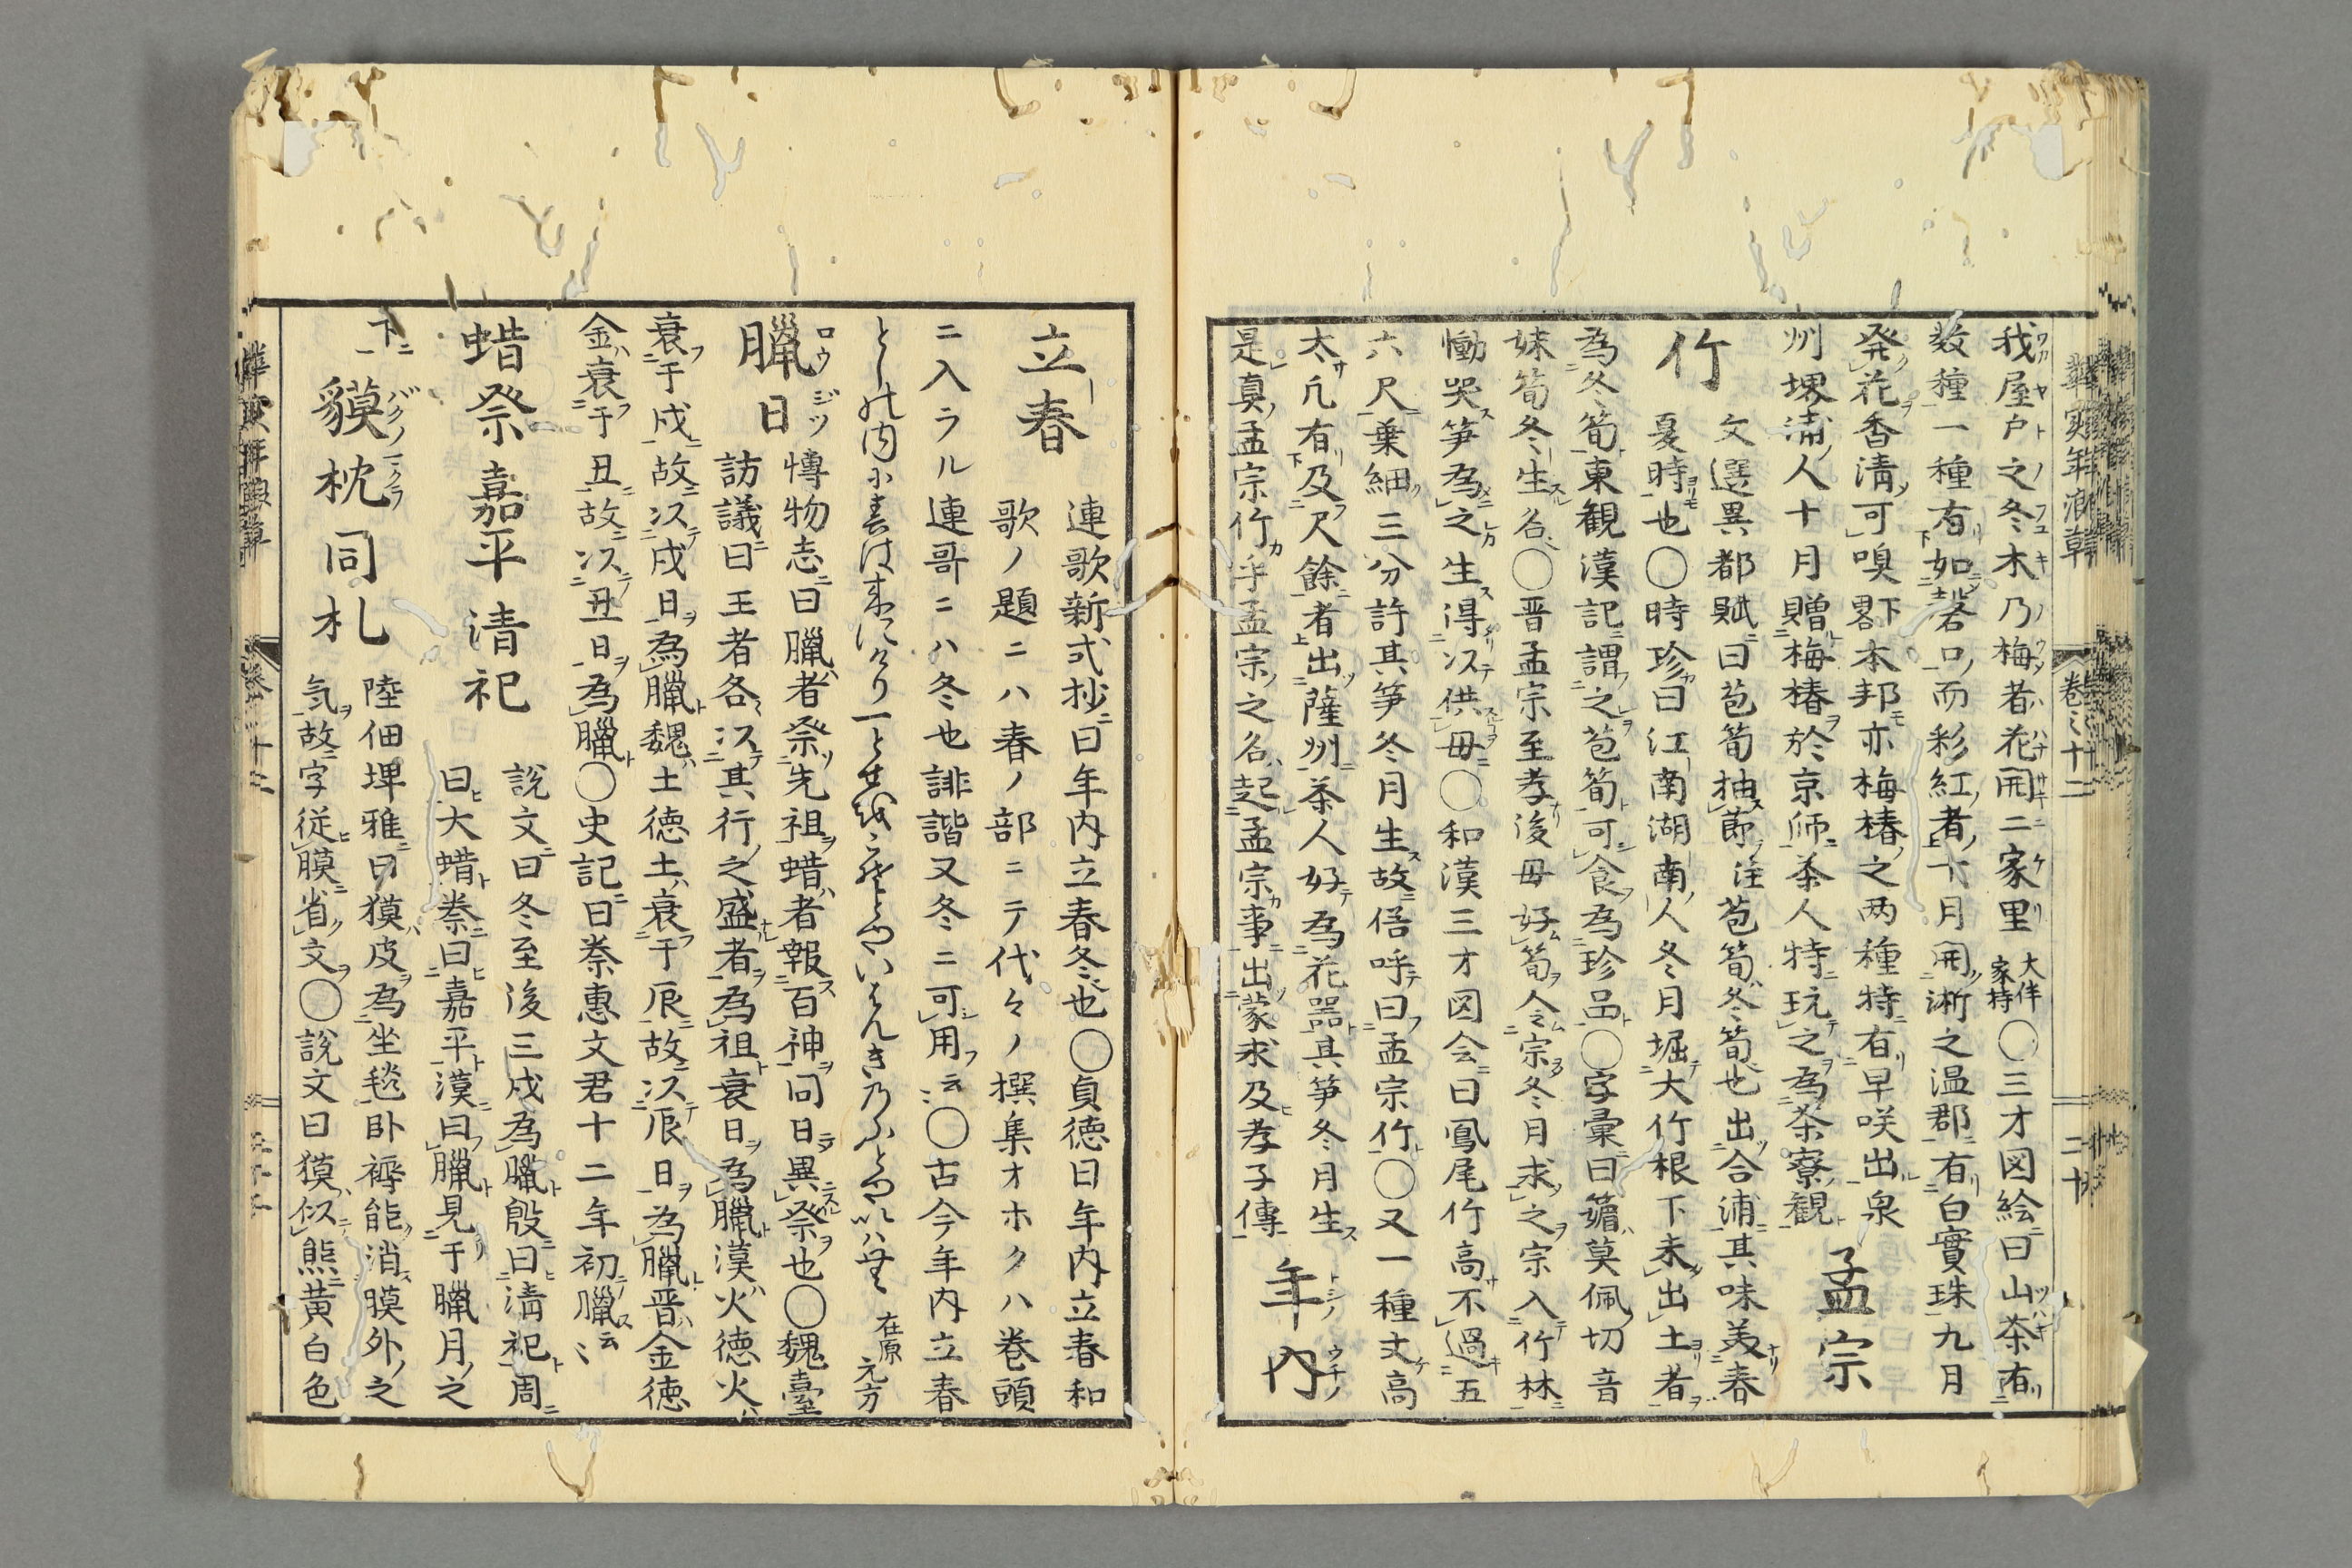 我屋戸之冬木乃梅者花開二家里大伴家持〇三才図絵曰山茶有
数種一種有如磬口而彩紅者十月開淅之温郡有白寶珠九月
発花香淸可嗅閣下本邦亦梅椿之两種特有早咲出泉
州堺浦人十月贈梅椿於京師茶人特玩之為茶寮観 孟宗
竹 文選異都賦曰苞筍抽節注苞筍冬筍也出合浦其味美春
夏時也〇時珍曰江南湖南人冬月堀大竹根下未出土者
為冬筍東観漢記謂之苞筍可食為珍品〇字彙曰䈽莫佩切音
妹筍冬生名〇晋孟宗至孝後母好筍令宗冬月求之宗入竹林
慟哭笋為之生得以供母〇和漢三才図会曰鳳尾竹高不過五
六尺葉細三分許其笋冬月生故俗呼曰孟宗竹〇又一種丈高
太凢有及尺餘者出薩州茶人好為花器其笋冬月生
是真孟宗竹乎孟宗之名起孟宗事出蒙求及孝子傳 年内
立春 連歌新式抄曰年内立春冬也〇貞徳曰年内立春和
歌ノ題ニハ春ノ部ニテ代々ノ撰集オホクハ巻頭
ニ入ラル連哥ニハ冬也誹諧又冬ニ可用云〻〇古今年内立春
としの内に春は来にけり一とせをこそとやいはんことしとやいはむ 在原元方
臘日 慱物志曰臘者祭先祖蜡者報百神同日異祭也〇魏臺
訪議曰王者各以其行之盛者為祖衰日為臘漢火徳火
衰于戌故以戌日為臘魏土徳土衰于辰故以辰日為臘晋金徳
金衰于丑故以丑日為臘〇史記曰秦惠文君十二年初臘云〻
蜡祭 嘉平 清祀 説文曰冬至後三戌為臘殷曰淸祀周
曰大蜡秦曰嘉平漢曰臘見于臘月之
下 貘枕 同札 陸佃埤雅曰獏皮為坐毯卧褥能消膜外之
気故字従膜省文〇説文曰獏似熊黄白色